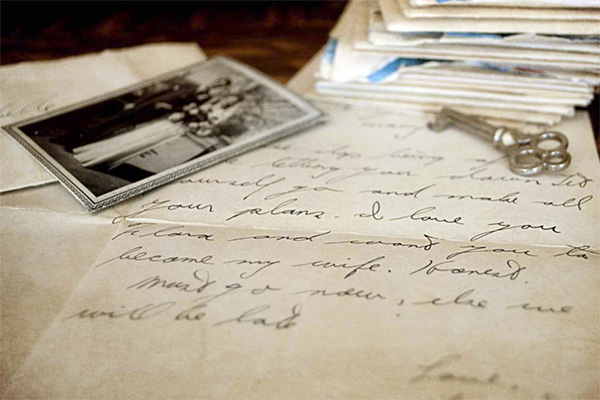 stop being
letting your
yourself go and make all
your plans. I love you
Flora and want you to
become my wife. Honest.
must go now, else we
will be late